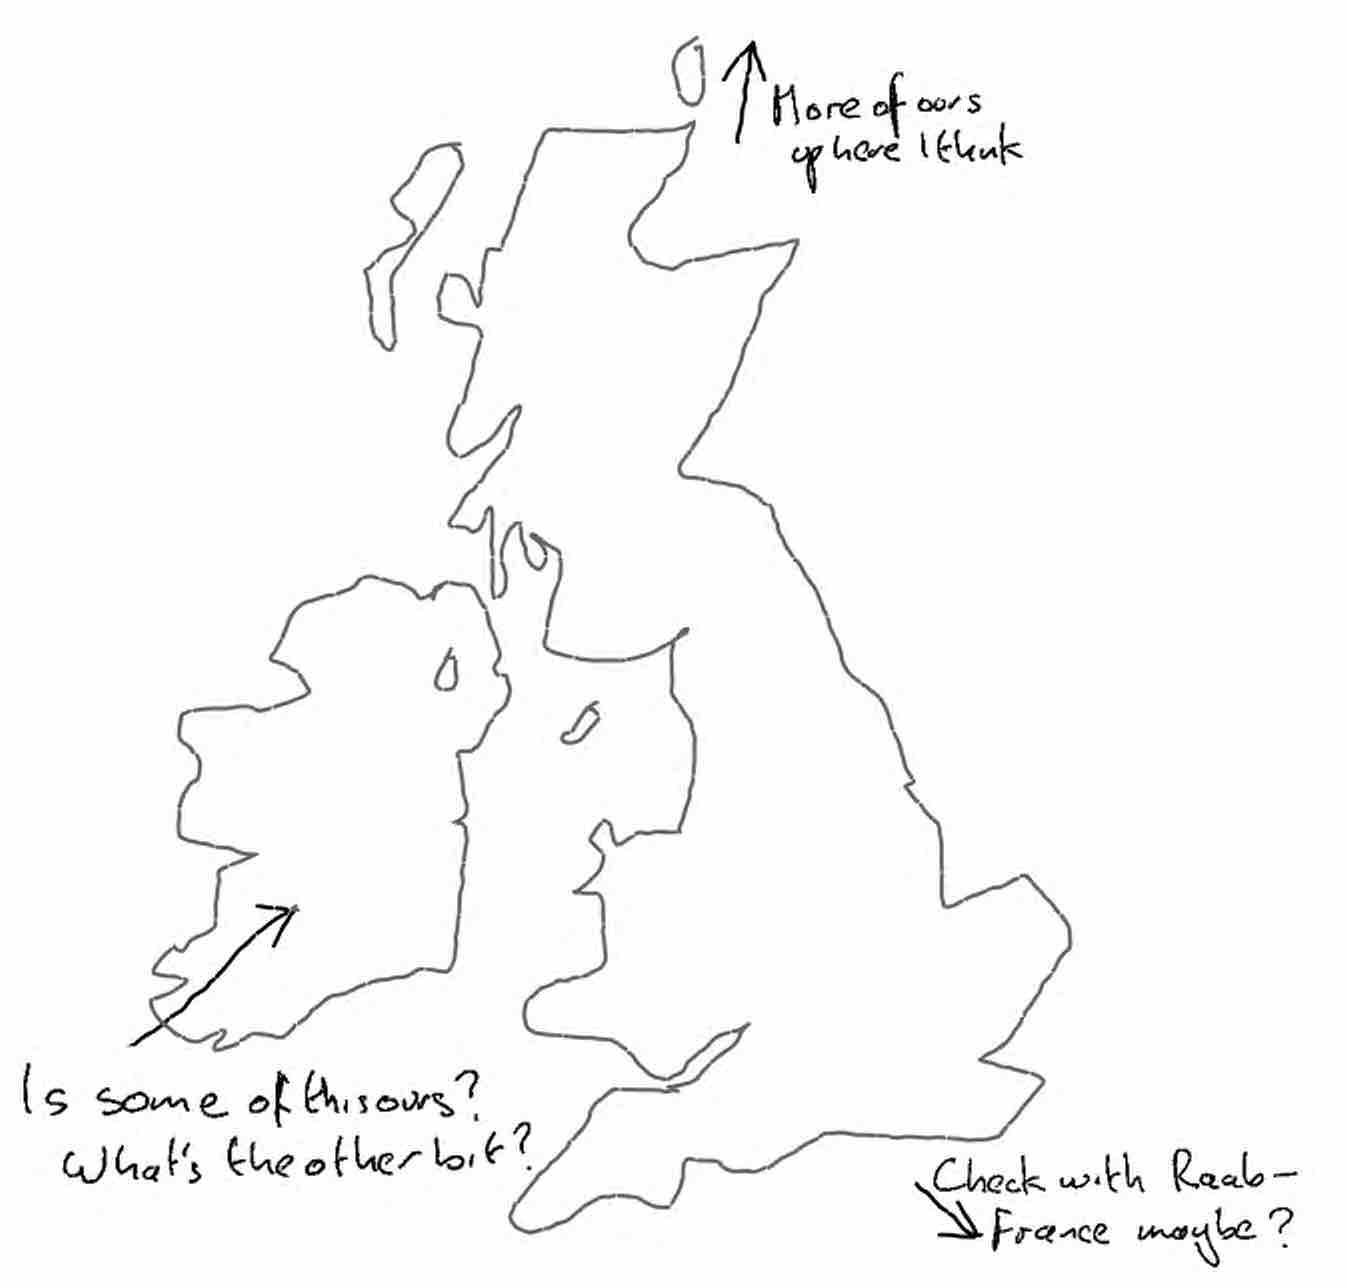 More of ours
up here I think
Is some of this ours?
What's the other bit?
Check with Raab–
France maybe?